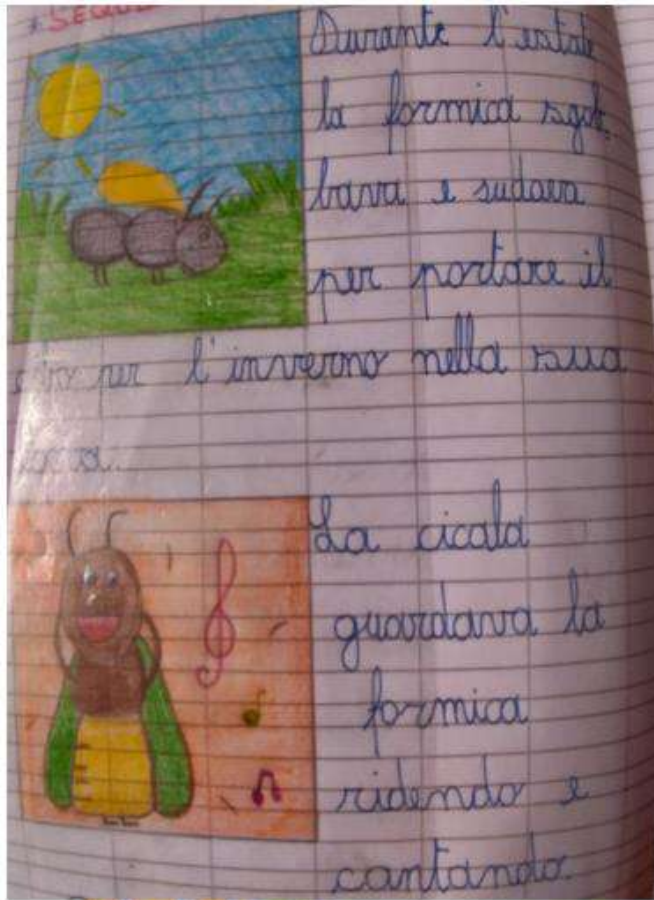 Durante l'estate
la formica sgob
bava e sudava
per portare il
cibo per l'inverno nella sua
La cicala
guardava la
formica
ridendo e
cantando.